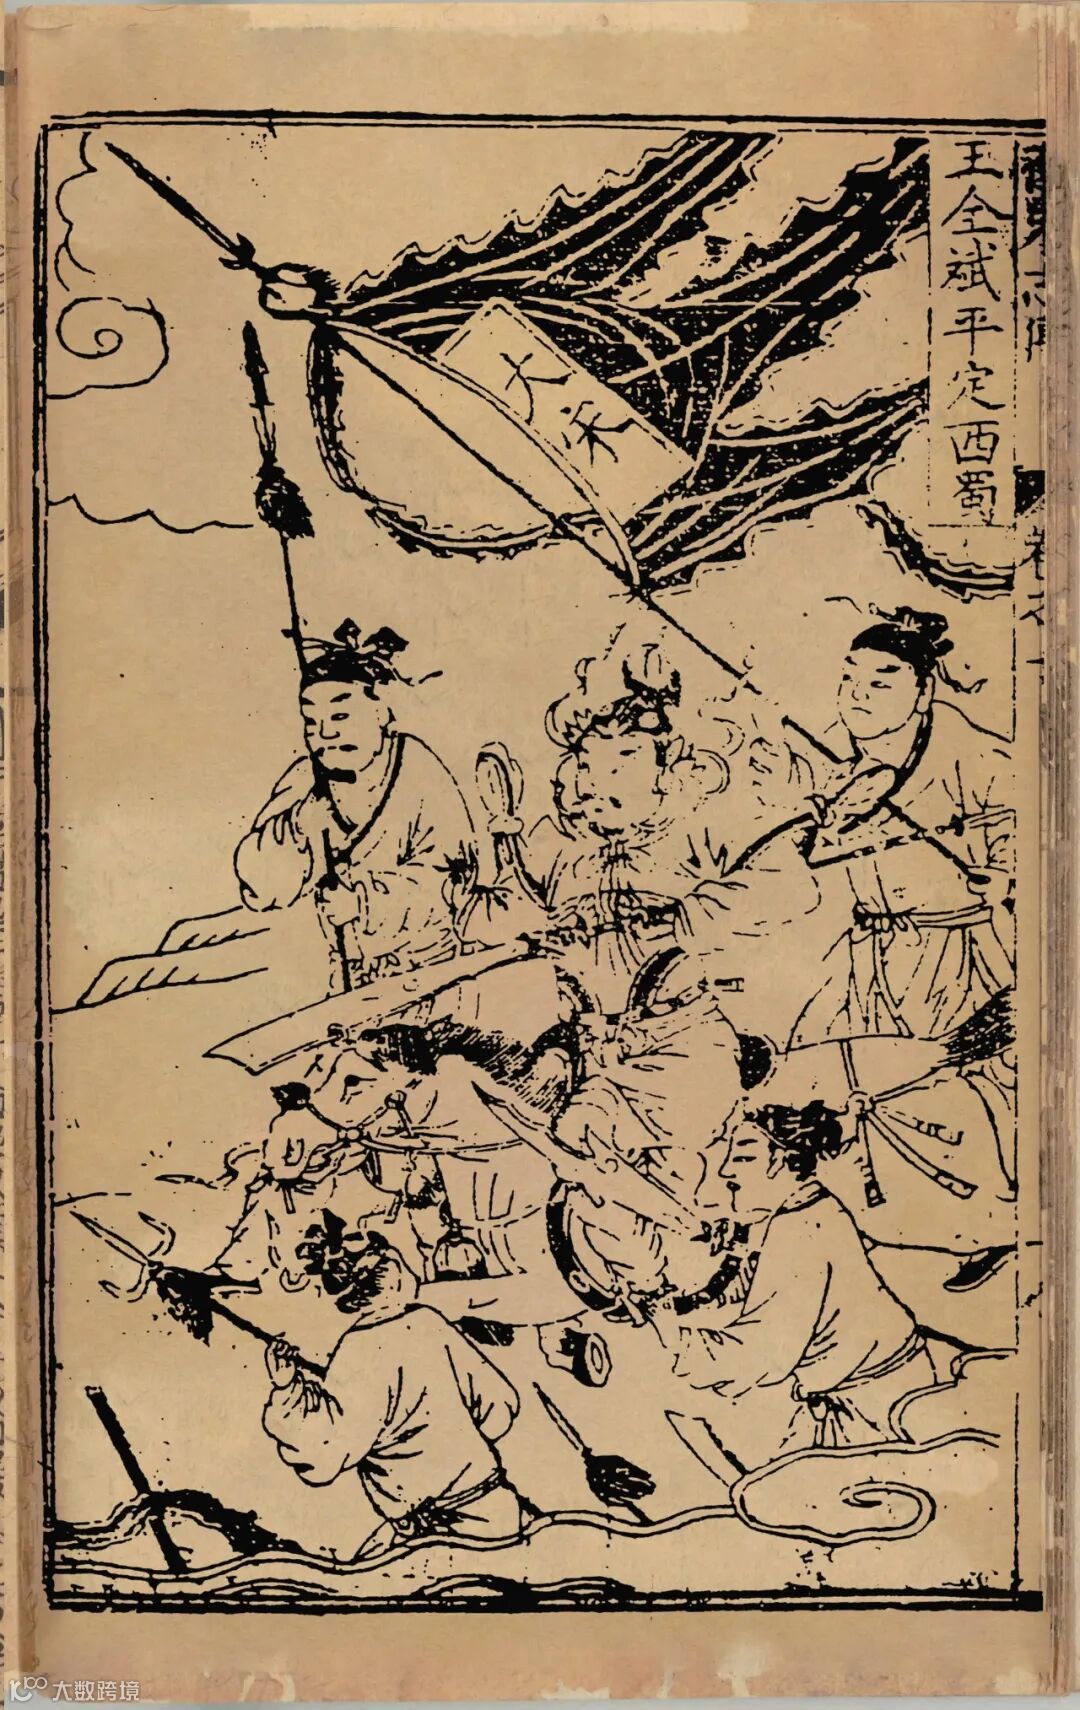 王全斌平定西蜀
大宋
大数跨境